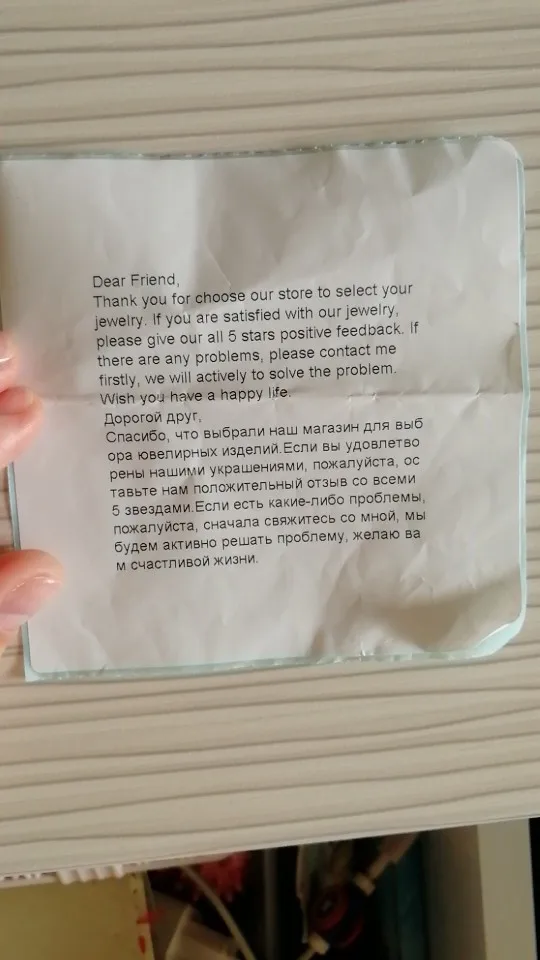 Dear Friend,
Thank you for choose our store to select your
jewelry. If you are satisfied with our jewelry,
please give our all 5 stars positive feedback. If
there are any problems, please contact me
firstly, we will actively to solve the problem.
Wish you have a happy life.
Дорогой друг,
Спасибо, что выбрали наш магазин для выб
ора ювелирных изделий.Если вы удовлетво
рены нашими украшениями, пожалуйста, ос
тавьте нам положительный отзыв со всеми
5 звездами.Если есть какие-либо проблемы,
пожалуйста, сначала свяжитесь со мной, мы
будем активно решать проблему, желаю ва
м счастливой жизни.